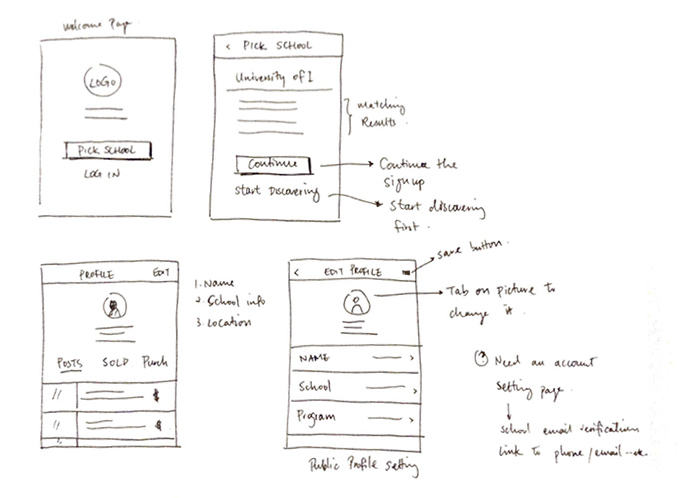 Welcome Page
LOGO
PICK SCHOOL
LOG IN
< PICK SCHOOL
University of I
Matching
Results.
Continue
Start Discovering
Continue the
sign up
Start discovering
first.
PROFILE EDIT
POSTS SOLD Punch
// $
// $
1. Name
2. School info
3. Location
< EDIT PROFILE
save button.
Tab on picture to
change it
NAME >
School >
Program >
Public Profile Setting
? Need an account
setting page.
school email verification
link to phone/email...etc.